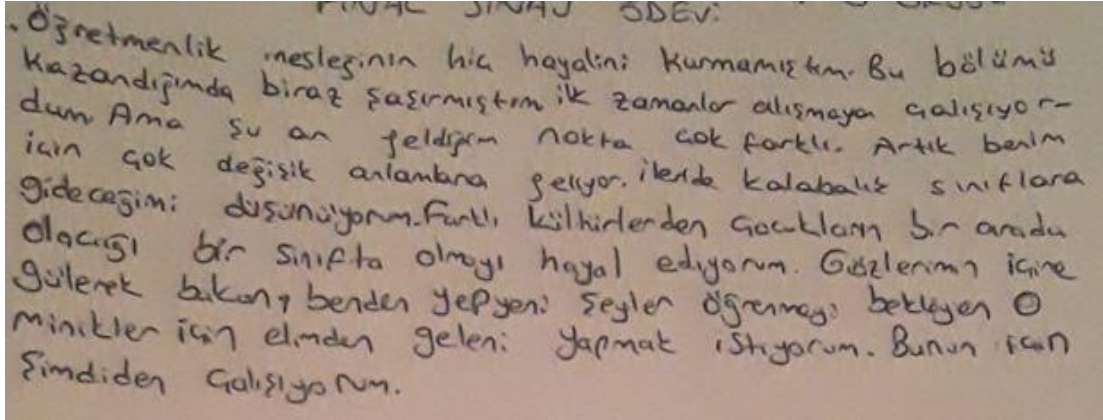 FİNAL SINAV ÖDEVİ
. Öğretmenlik mesleğinin hiç hayalini kurmamıştım. Bu bölümü
kazandığımda biraz şaşırmıştım ilk zamanlar alışmaya çalışıyor-
dum. Ama şu an geldiğim nokta çok farklı. Artık benim
için çok değişik anlamlara geliyor. ilerde kalabalık sınıflara
gideceğimi düşünüyorum. Farklı kültürlerden çocukların bir arada
olacağı bir sınıfta olmayı hayal ediyorum. Gözlerimin içine
gülerek bakan, benden yepyeni şeyler öğrenmeyi bekleyen o
minikler için elimden geleni yapmak istiyorum. Bunun için
şimdiden çalışıyorum.